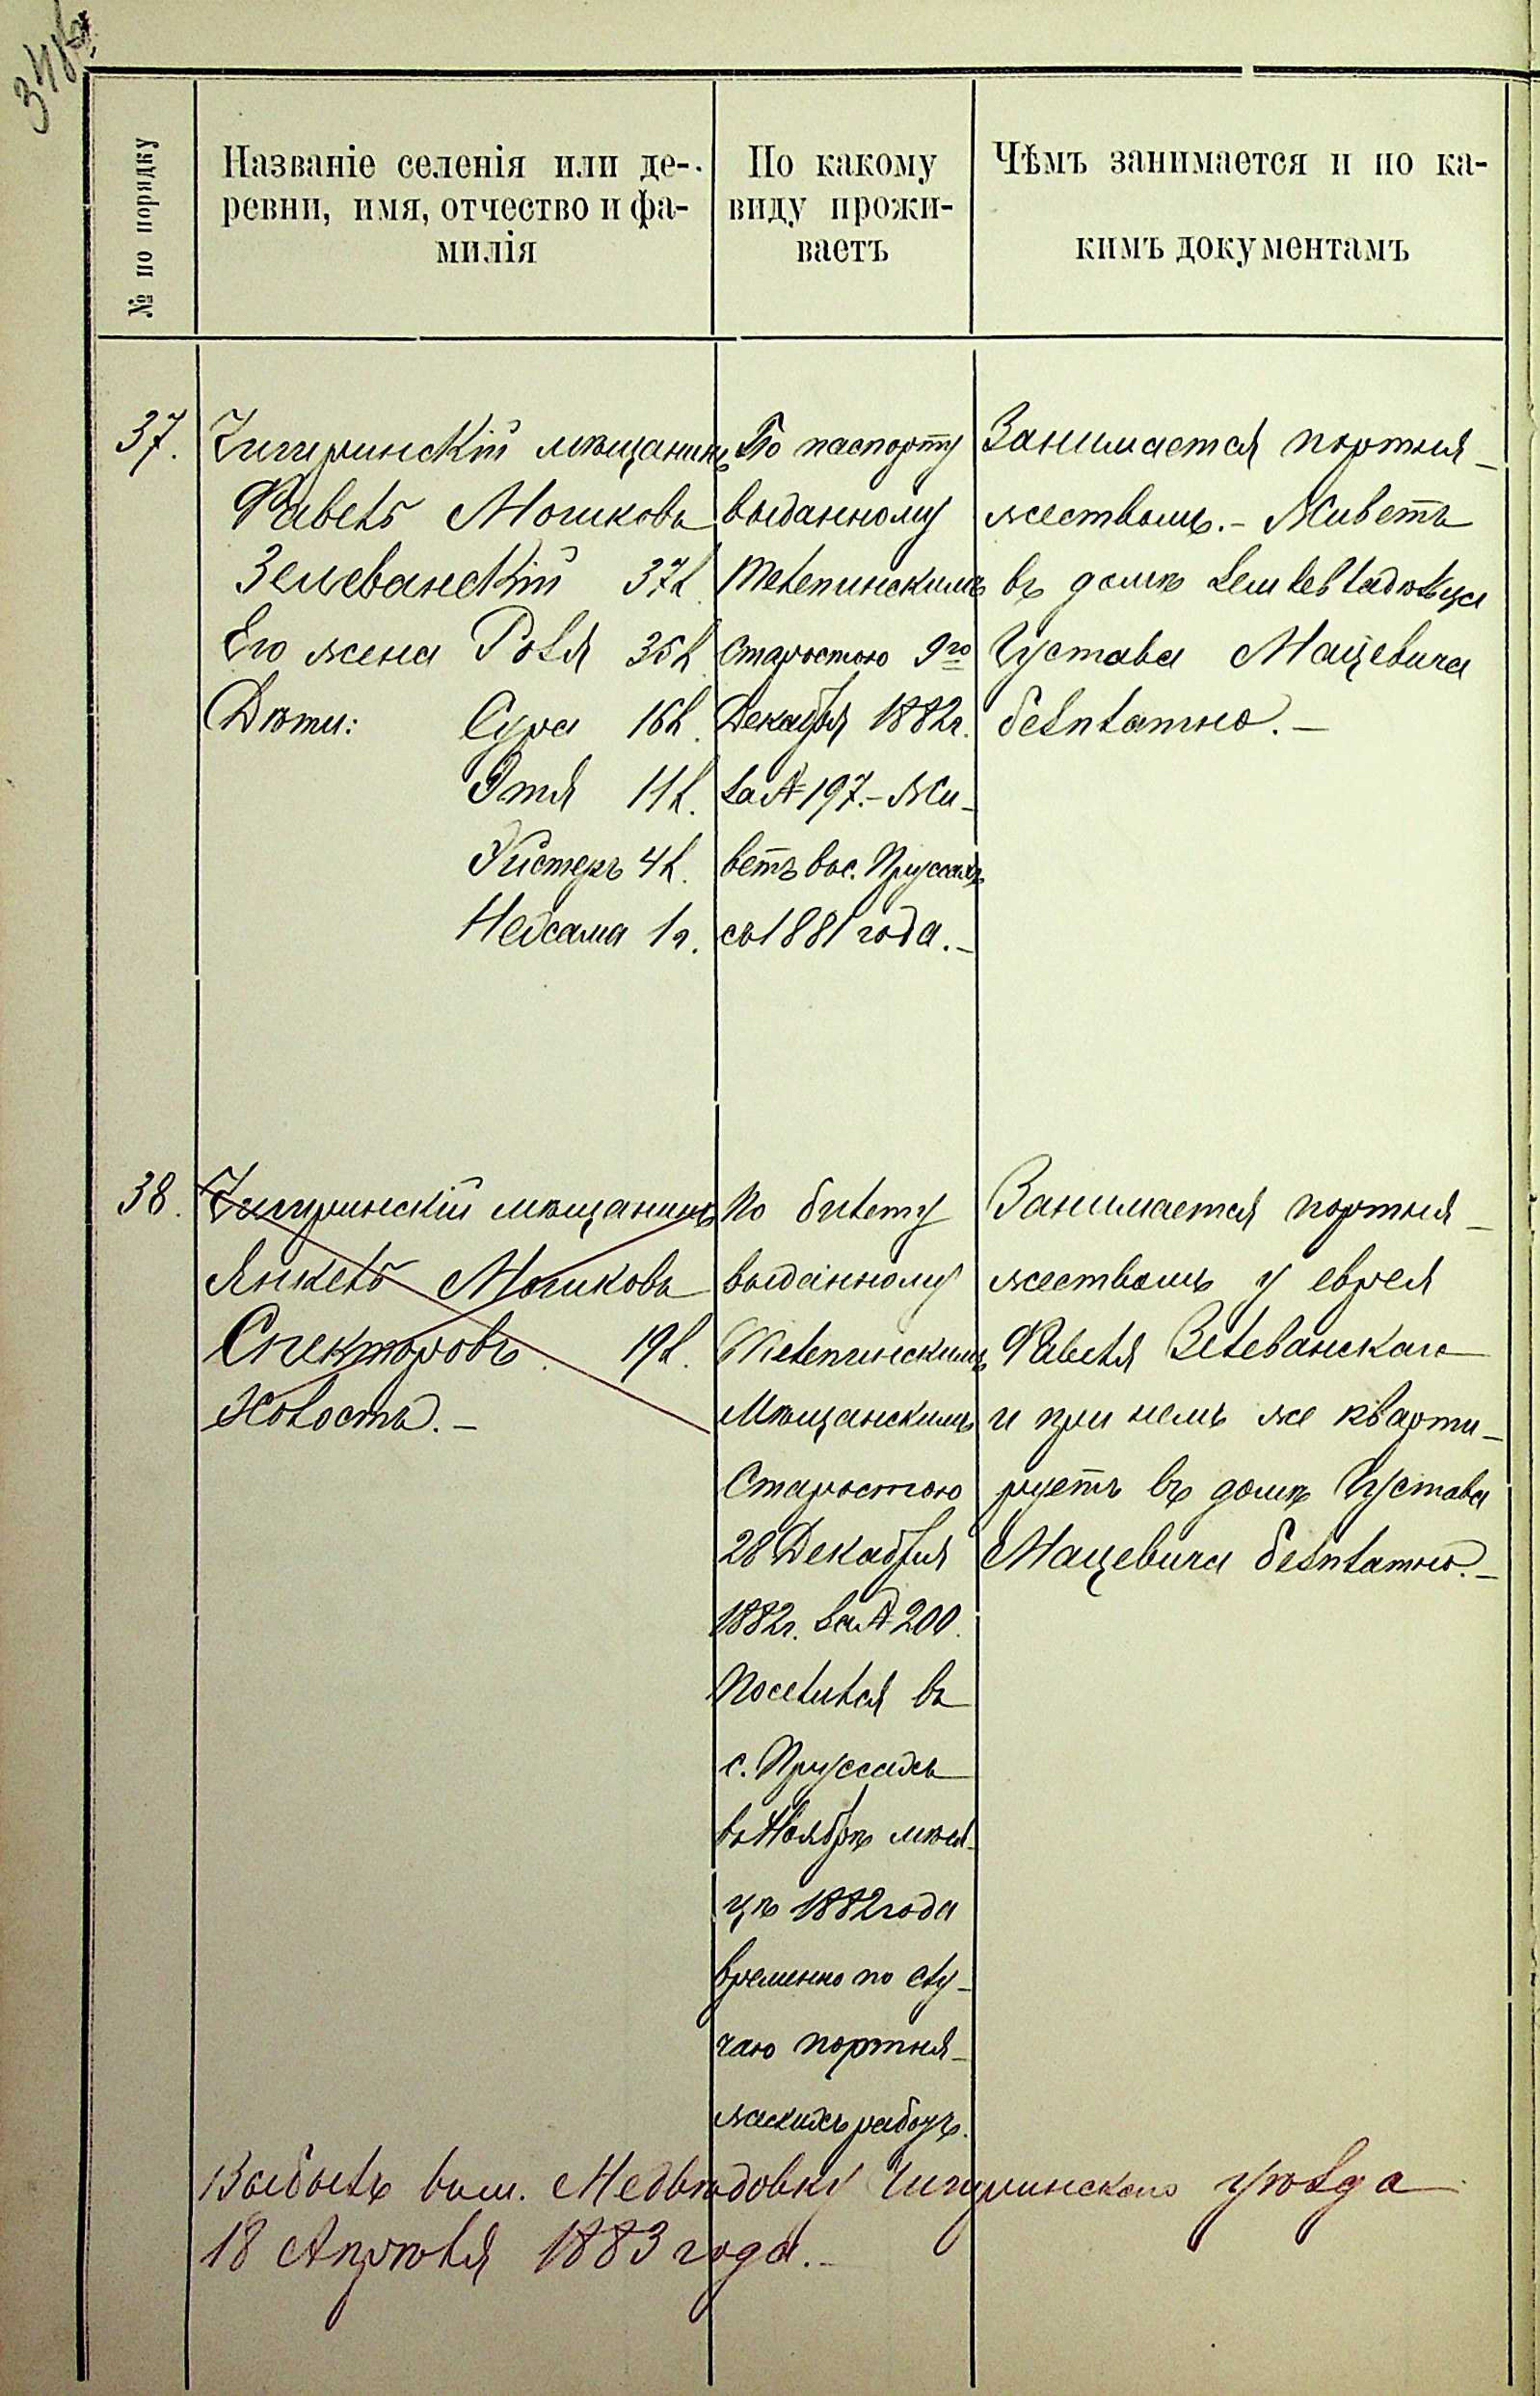 № по порядку
Названіе селенія или де-
ревни, имя, отчество и фа-
милія
По какому
виду прожи-
ваетъ
Чѣмъ занимается и по ка-
кимъ документамъ
37.
Чигиринскій мѣщанинъ
Фавель Мошковъ
Зелеванскій 37 л.
Его жена Розя 35 л.
Дѣти: Сура 16 л.
Этя 11 л.
Эистеръ 4 л.
Нехама 1 г.
По паспорту
выданному
Телепинскимъ
Старостою 9го
Декабря 1882 г.
за № 197. – Жи-
ветъ въ с. Пруссахъ
съ 1881 года. –
Занимается портня-
жествомъ. – Живетъ
въ домѣ землевладѣльца
Густава Мацевича
безплатно. –
38.
Чигиринскій мѣщанинъ
Янкель Мошковъ
Спекторовъ. 19 л.
Холостъ. –
По билету
выданному
Телепинскимъ
Мѣщанскимъ
Старостою
28 Декабря
1882 г. за № 200.
Поселился въ
с. Пруссахъ
въ Ноябрѣ мѣся-
цѣ 1882 года
временно по слу-
чаю портня-
жскихъ работъ.
Занимается портня-
жествомъ у еврея
Фавеля Зелеванскаго
и при немъ же кварти-
руетъ въ домѣ Густава
Мацевича безплатно. –
Выбылъ въ м. Медвѣдовку Чигиринскаго уѣзда
18 Апрѣля 1883 года. –